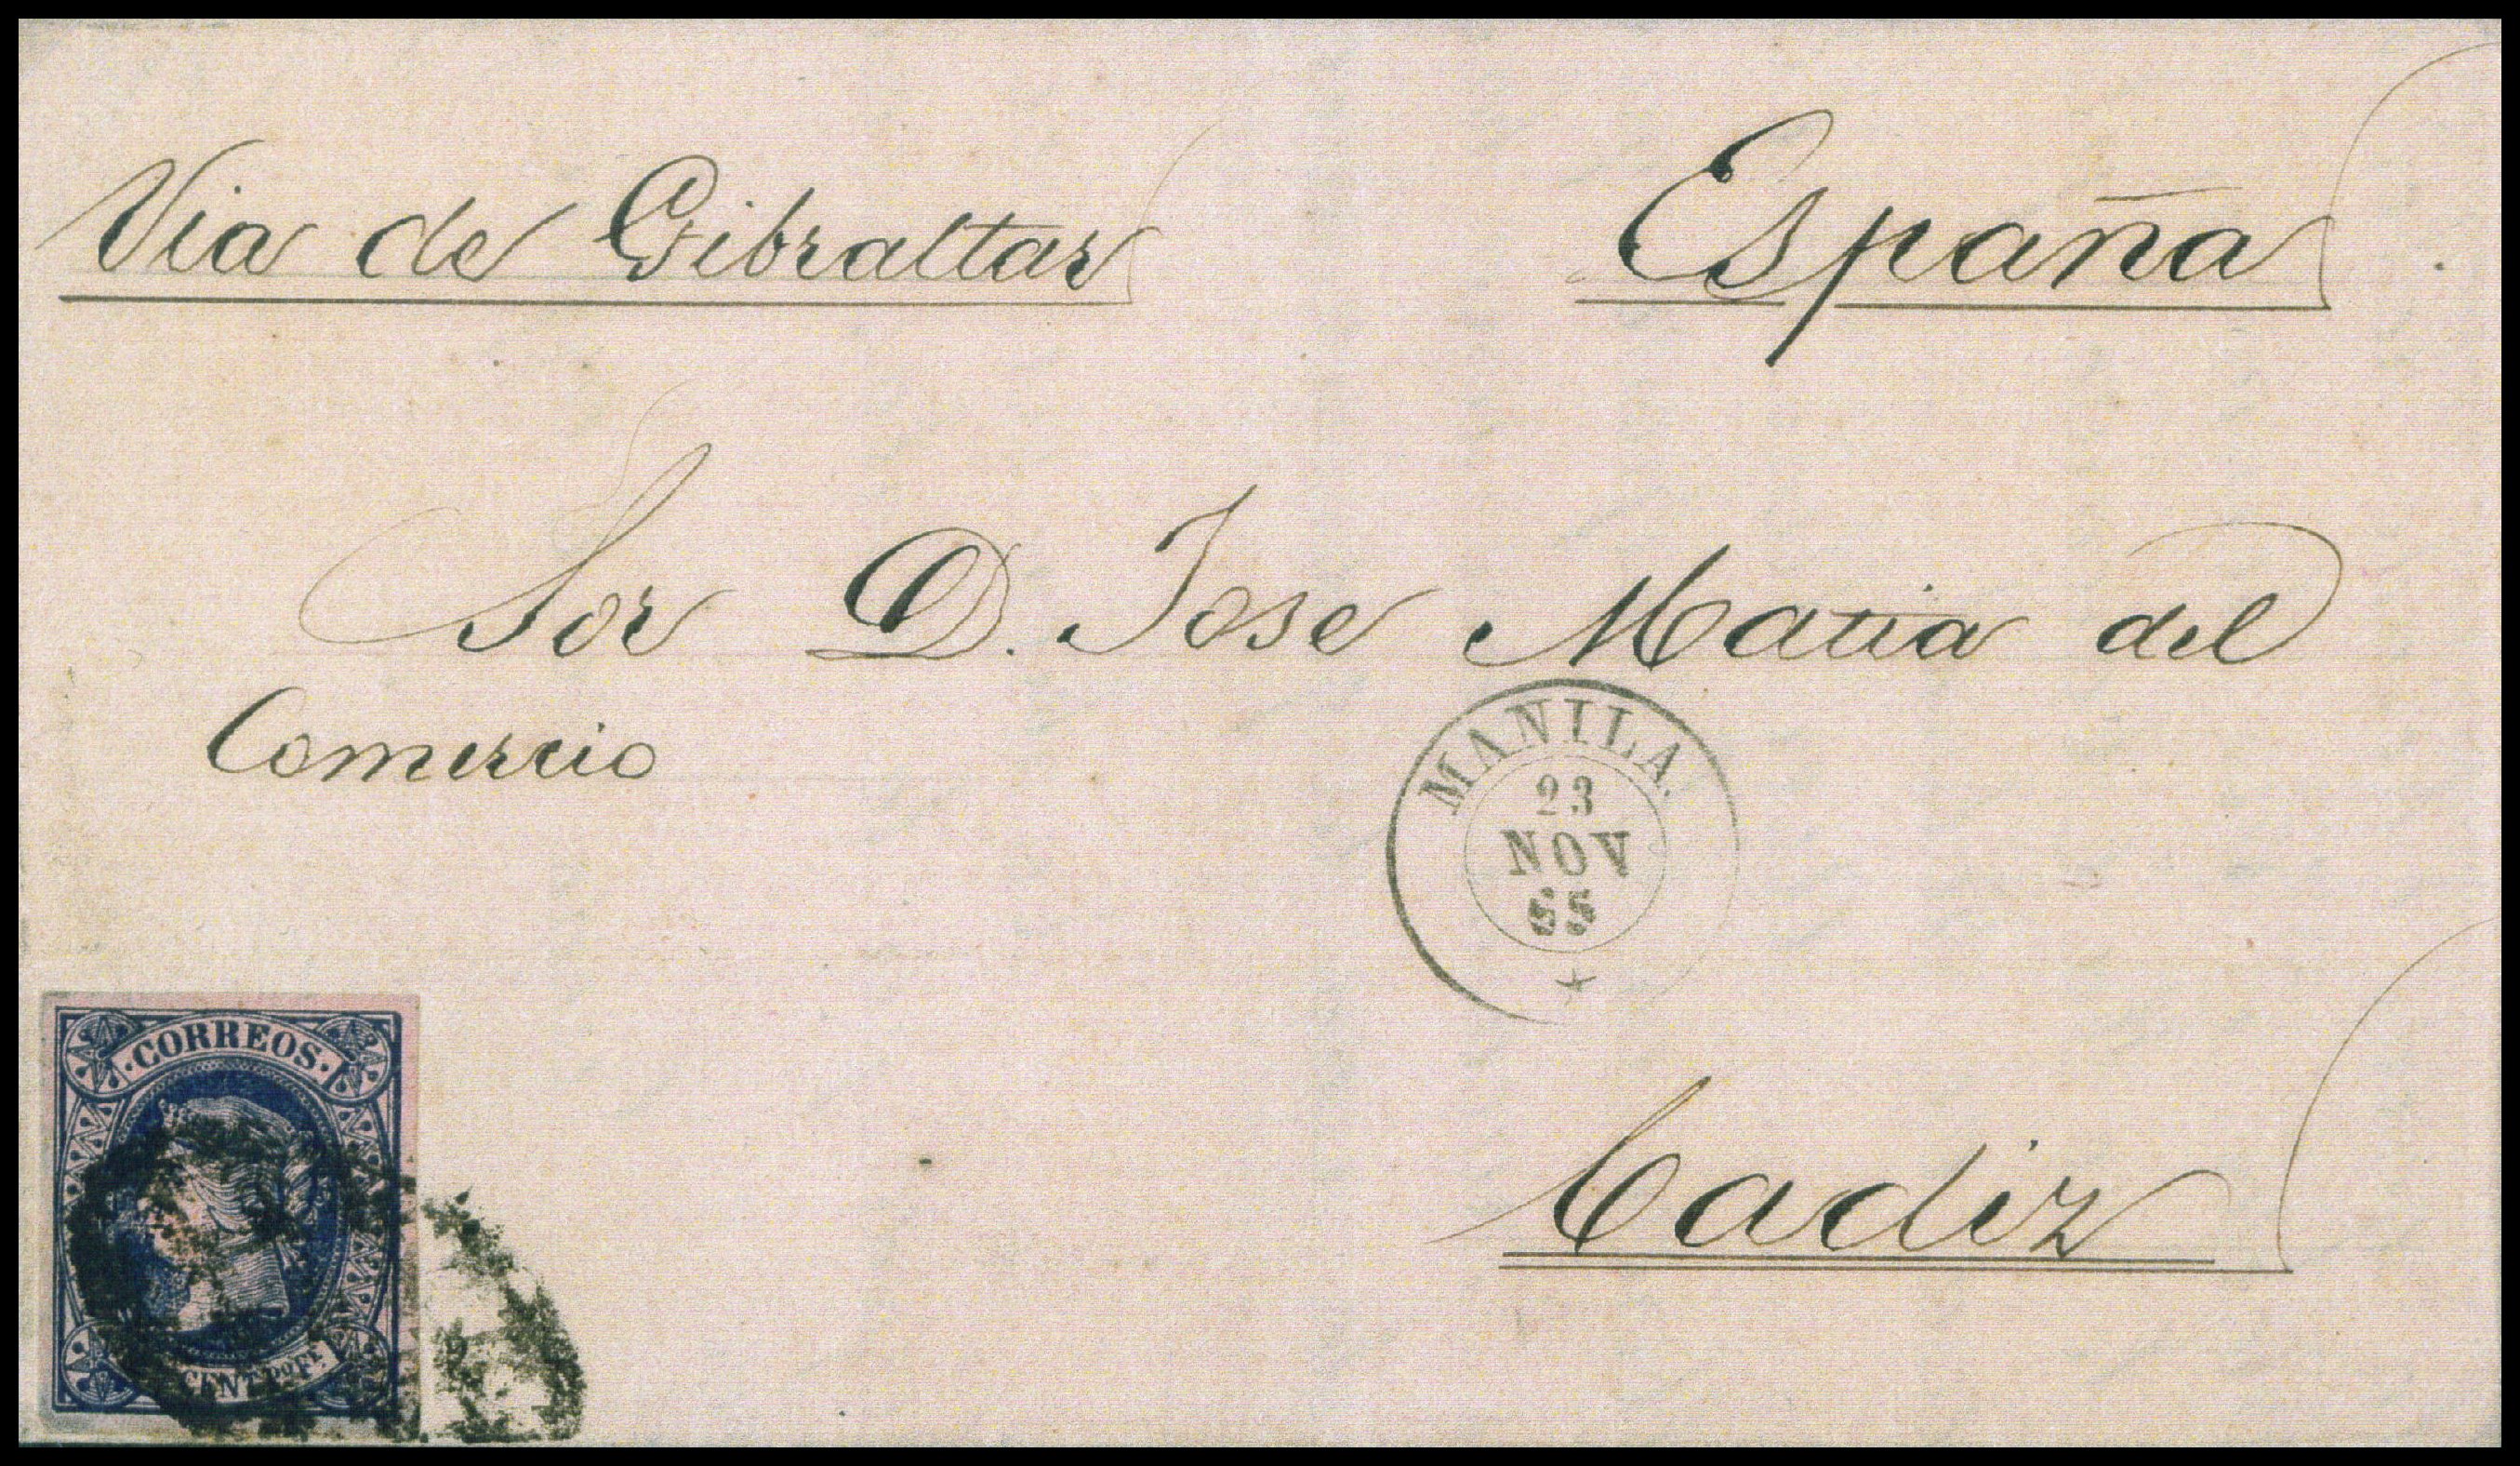 Via de Gibraltar
España
Sor D. Jose Matia del
Comercio
MANILA.
23
NOV
65
Cadiz
·CORREOS·
CENT PO FE.